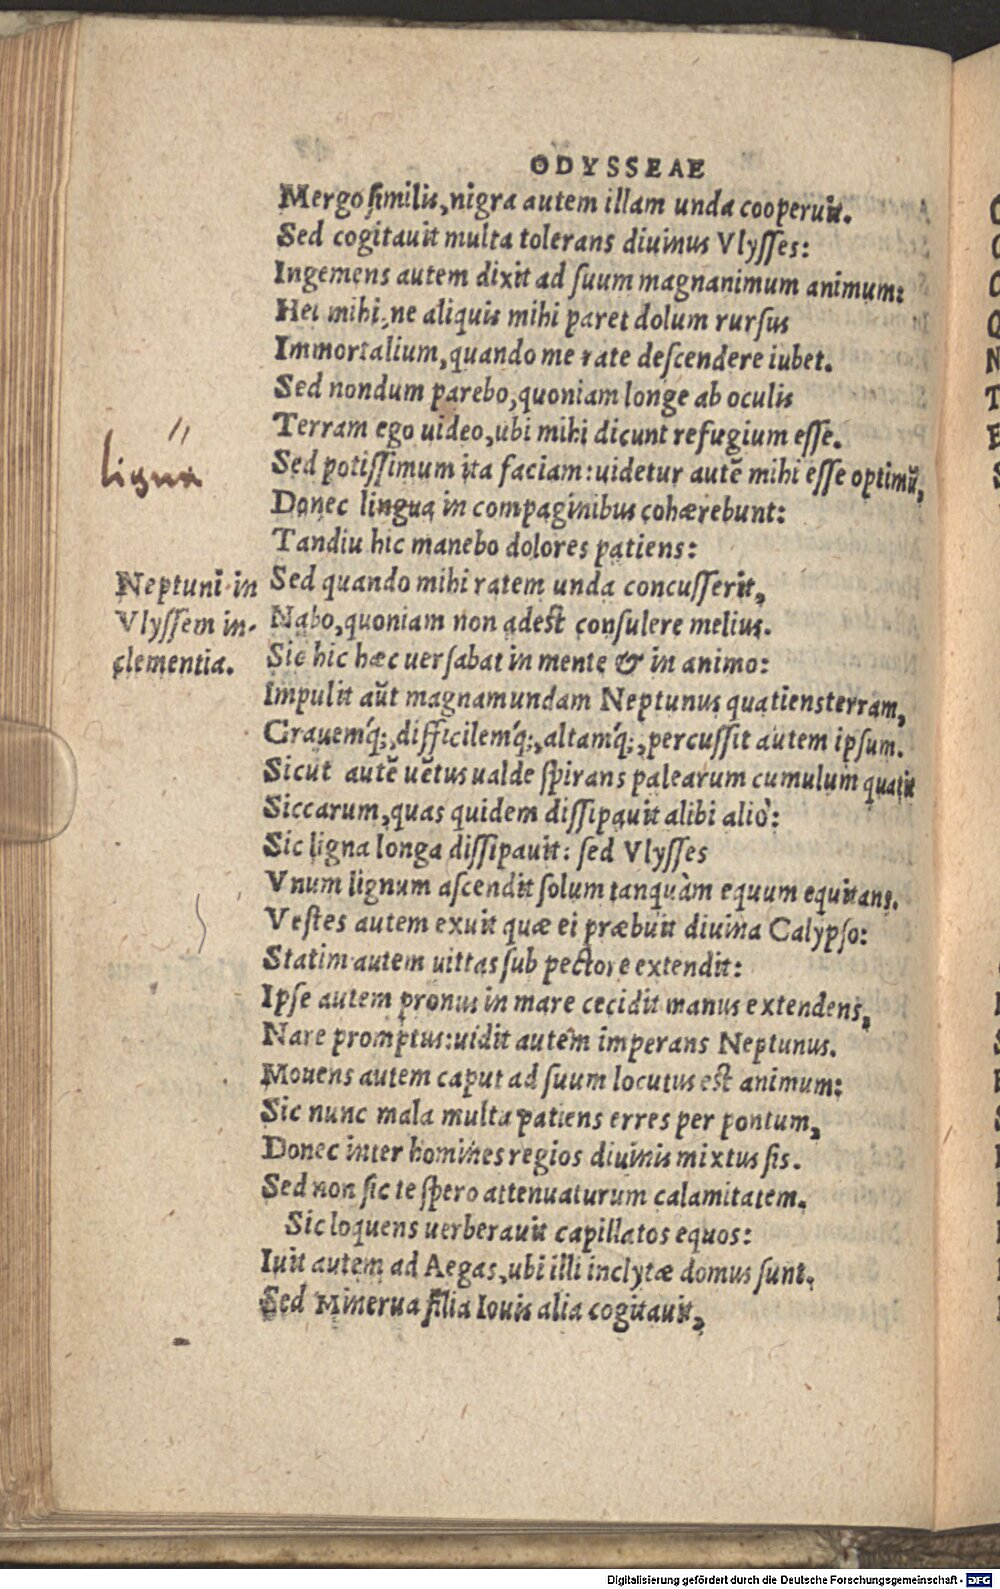 ODYSSEAE
Mergo ſimilis, nigra autem illam unda cooperuit.
Sed cogitauit multa tolerans diuinus Vlyſſes:
Ingemens autem dixit ad ſuum magnanimum animum:
Hei mihi, ne aliquis mihi paret dolum rurſus
Immortalium, quando me rate deſcendere iubet.
Sed nondum parebo, quoniam longe ab oculis
Terram ego uideo, ubi mihi dicunt refugium eſſe.
Sed potiſſimum ita faciam: uidetur autē mihi eſſe optimū,
ligna
Donec lingua in compaginibus cohærebunt:
Tandiu hic manebo dolores patiens:
Neptuni in
Vlyſſem in-
clementia.
Sed quando mihi ratem unda concuſſerit,
Nabo, quoniam non adest conſulere melius.
Sic hic hæc uerſabat in mente & in animo:
Impulit aūt magnam undam Neptunus quatiens terram,
Grauemq́;, difficilemq́;, altamq́;, percuſſit autem ipſum.
Sicut autē uētus ualde ſpirans palearum cumulum quatit
Siccarum, quas quidem diſſipauit alibi aliò:
Sic ligna longa diſſipauit: ſed Vlyſſes
Vnum lignum aſcendit ſolum tanquàm equum equitans.
Veſtes autem exuit quæ ei præbuit diuina Calypſo:
Statim autem uittas ſub pectore extendit:
Ipſe autem pronus in mare cecidit manus extendens,
Nare promptus: uidit autêm imperans Neptunus.
Mouens autem caput ad ſuum locutus est animum:
Sic nunc mala multa patiens erres per pontum,
Donec inter homines regios diuinis mixtus ſis.
Sed non ſic te ſpero attenuaturum calamitatem.
Sic loquens uerberauit capillatos equos:
Iuit autem ad Aegas, ubi illi inclytæ domus ſunt.
Sed Minerua filia Iouis alia cogitauit,
Digitalisierung gefördert durch die Deutsche Forschungsgemeinschaft - DFG